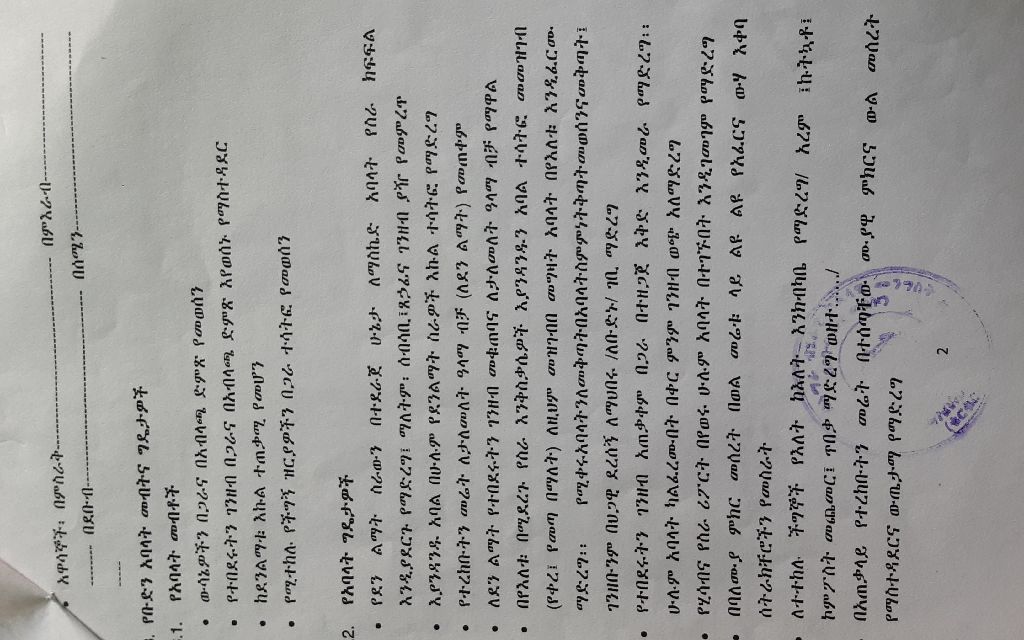 አዋሳኞች፡ በምስራት-------------------- በምእራብ--------------------
-------- በደቡብ-------------------- በሰሜን--------------------
-----
የቡድን አባላት መብትና ግዴታዎች
.1. የአባላት መብቶች
• ውሳኔዎችን በጋራና በአብላጫ ድምጽ የመወሰን
• የተበደሩትን ገንዘብ በጋራና በአብላጫ ድምጽ እየወሰኑ የማስተዳደር
• ከደንልማቱ እኩል ተጠቃሚ የመሆን
• የሚተከሉ የችግኝ ዝርያዎችን በጋራ ተሳትፎ የመወሰን
2. የአባላት ግዴታዎች
• የደን ልማት ስራውን በተደራጀ ሁኔታ ለማስኬድ አባላት የስራ ክፍፍል
እንዲያደርጉ የማድረግ፤ ማለትም፡ ሰብሳቢ፤ጸኃፊና ገንዘብ ያዥ የመምረጥ
• እያንዳንዱ አባል በሁሉም የደንልማት ስራዎች እኩል ተሳትፎ የማድረግ
• የተረከቡትን መሬት ለታለመለት ዓላማ ብቻ (ለደን ልማት) የመጠቀም
• ለደን ልማት የተበደሩትን ገንዘብ መቁጠብና ለታለመለት ዓላማ ብቻ የማዋል
• በየእለቱ በሚደረጉ የስራ እንቅስቃሴዎች እያንዳንዱን አባል ተሳትፎ መመዝገብ
(የቀረ፤ የመጣ በማለት) ለዚህም መዝገብበ መግዛት አባላት በየእለቱ እንዲፈርሙ
ማድረግ፡፡ የሚቀሩአባላትንለመቅጣትበአባላትስምምነትቅጣትመወሰንናመቅጣት፤
ገንዘቡንም በህጋዊ ደረሰኝ ለማህበሩ /ለቡድኑ/ ገቢ ማድረግ
• የተበደሩትን ገንዘብ አጠቃቀም በጋራ በተዘጋጀ እቅድ እንዲመራ የማድረግ፡፡
ሁሉም አባላት ካልፈረሙበት በቀር ምንም ገንዘብ ወጭ አለማድረግ
• የሂሳብና የስራ ሪፖርት በየወሩ ሁሉም አባላት በተገኙበት እንዲገመገም የማድረግ
• በባለሙያ ምክር መሰረት በወል መሬቱ ላይ ልዩ ልዩ የአፈርና ውሃ እቀባ
ስትራክቸሮችን የመስራት
• ለተተከሉ ችግኞች የእለት ከእለት እንክብካቤ የማድረግ/ አረም ፤ኩትኳቶ፤
ኮምፖስት መጨመር፤ ጥበቃ ማድረግ ወዘተ....../
• በአጠቃላይ የተረከቡትን መሬት በተሰጣቸው ሙያዊ ምክርና ውል መሰረት
የማስተዳደርና ውጤታማ የማድረግ
2